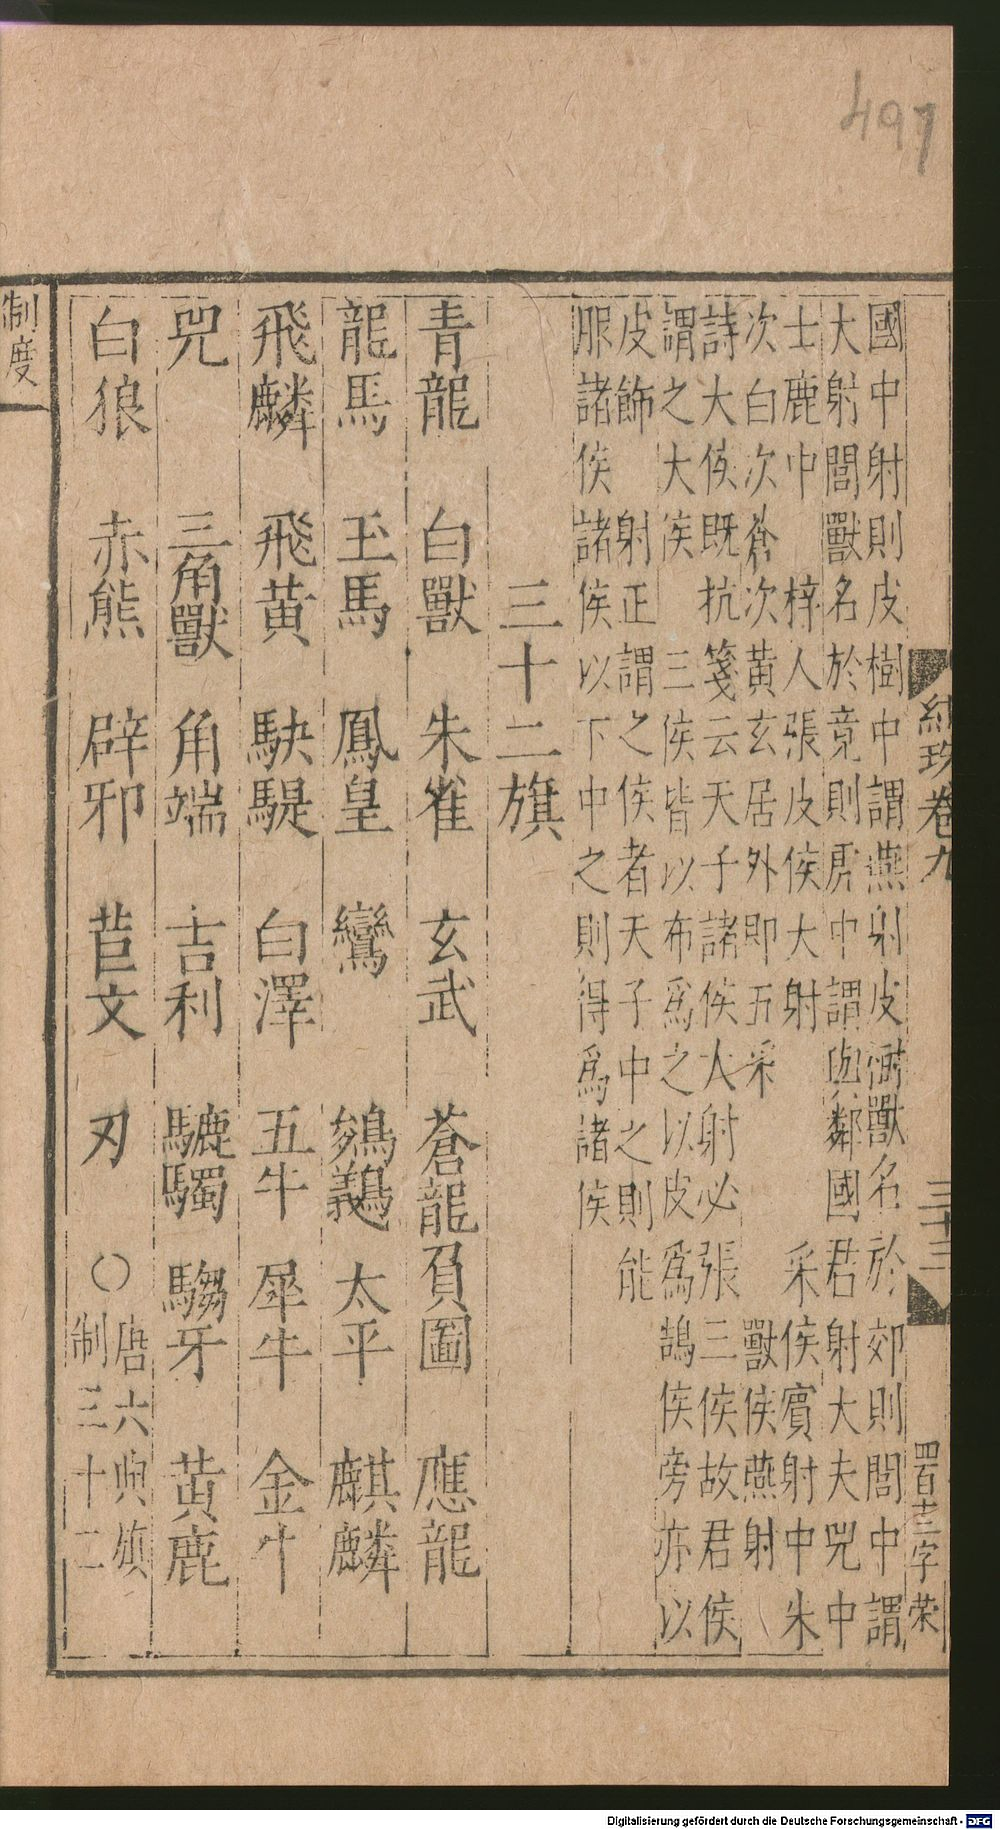 491
紀珠卷九
三十三
四百十三字荣
國中射則皮樹中謂燕射皮樹獸名於郊則閭中謂
大射閭獸名於竟則虎中謂與鄰國君射大夫兕中
士鹿中 梓人張皮侯大射 采侯賓射中朱
次白次蒼次黃玄居外即五采 獸侯燕射
詩大侯既抗箋云天子諸侯大射必張三侯故君侯
謂之大侯 三侯皆以布爲之以皮爲鵠侯旁亦以
皮飾 射正謂之侯者天子中之則能
服諸侯諸侯以下中之則得爲諸侯
三十二旗
青龍 白獸 朱雀 玄武 蒼龍負圖 應龍
龍馬 玉馬 鳳皇 鸞 鵕鸃 太平 麒麟
飛麟 飛黃 駃騠 白澤 五牛 犀牛 金牛
兕 三角獸 角端 吉利 驉䮷 騶牙 黃鹿
白狼 赤熊 辟邪 苣文 刃 〇唐六典旗
制三十二
制度
Digitalisierung gefördert durch die Deutsche Forschungsgemeinschaft - DFG